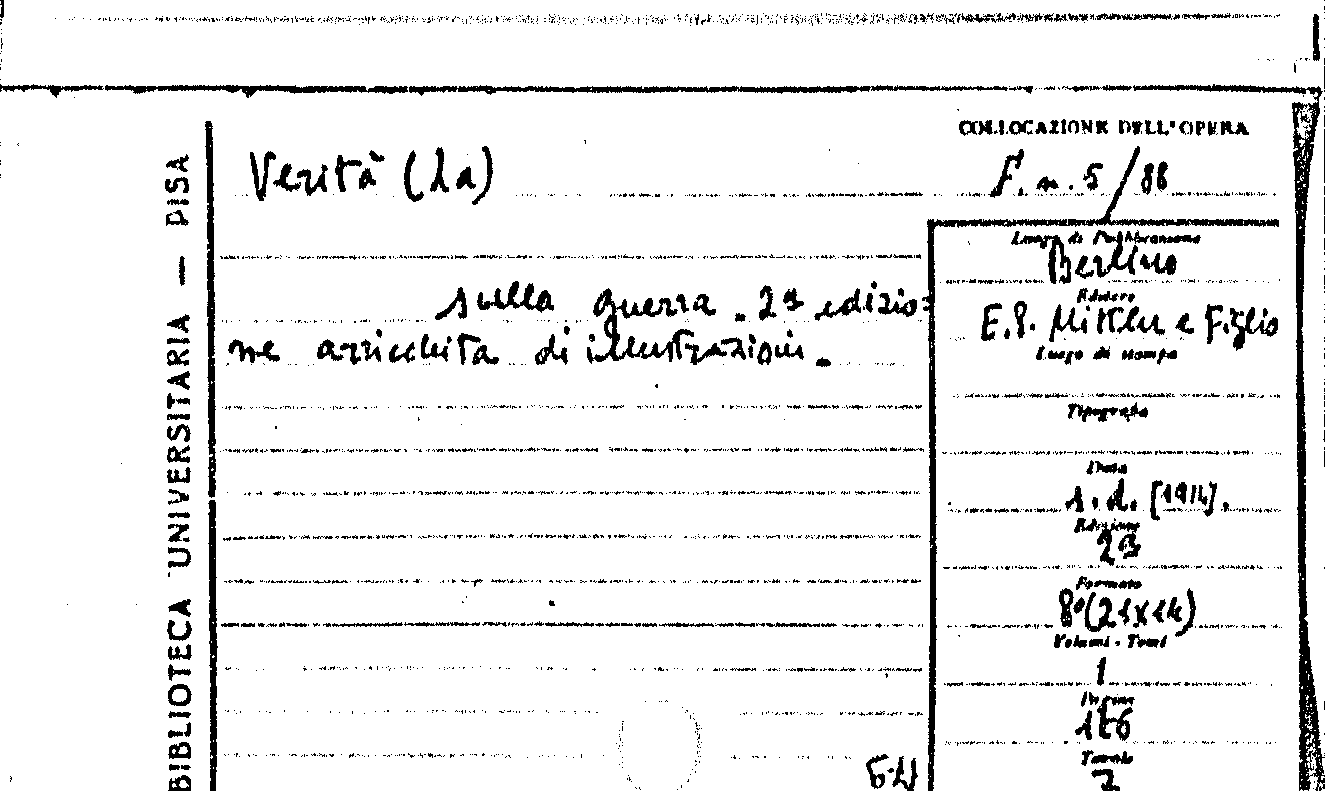 BIBLIOTECA UNIVERSITARIA — PISA
COLLOCAZIONE DELL'OPERA
Verità (La)
F. n. 5/88
Luogo di Pubblicazione
Berlino
sulla guerra. 2ª edizio=
ne arricchita di illustrazioni.
Editore
E. S. Mittler e Figlio
Luogo di stampa
Tipografo
Data
s. d. [1914].
Edizione
2ª
Formato
8° (21x14)
Volumi - Tomi
1
Pagine
Tavole
7